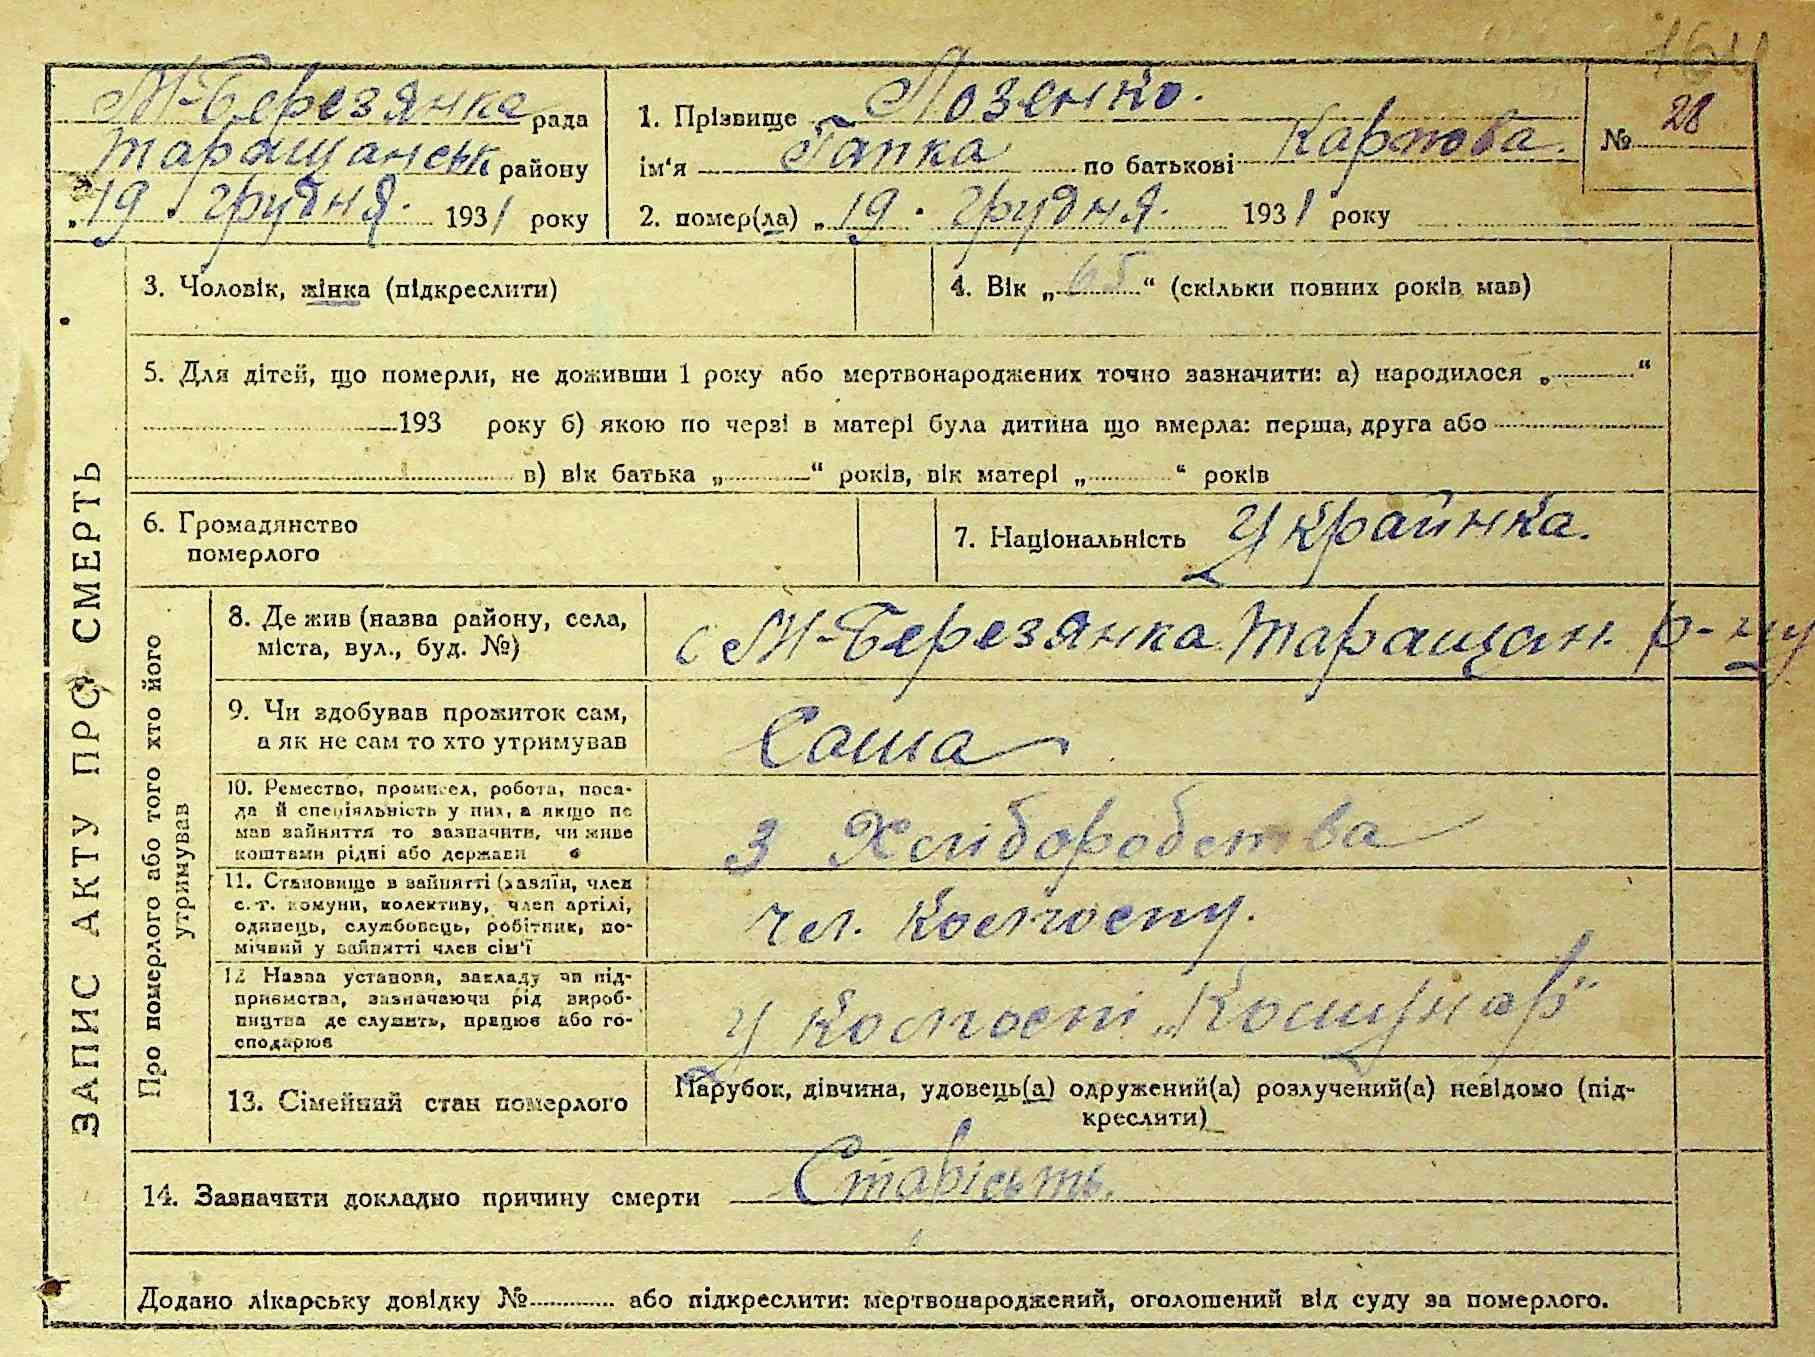 164
М-Березянка рада
Таращанськ району
„19 . грудня. 1931 року
1. Прізвище Лозенко.
ім'я Гапка по батькові Карпова.
2. помер(ла) „19 . грудня. 1931 року
№ 28
ЗАПИС АКТУ ПРО СМЕРТЬ
3. Чоловік, жінка (підкреслити)
4. Вік „65“ (скільки повних років мав)
5. Для дітей, що померли, не доживши 1 року або мертвонароджених точно зазначити: а) народилося „ “
193 року б) якою по черзі в матері була дитина що вмерла: перша, друга або
в) вік батька „ “ років, вік матері „ “ років
6. Громадянство
померлого
7. Національність Украйнка.
Про померлого або того хто його
утримував
8. Де жив (назва району, села,
міста, вул., буд. №)
с М-Березянка Таращан. р-ну
9. Чи здобував прожиток сам,
а як не сам то хто утримував
Сама
10. Ремество, промисел, робота, поса-
да й спеціяльність у них, а якщо не
мав зайняття то зазначити, чи живе
коштами рідні або держави
З Хліборобства
11. Становище в зайнятті (хазяїн, член
с.-г. комуни, колективу, член артілі,
одинець, службовець, робітник, по-
мічний у зайнятті член сім'ї
чл. колгоспу.
12 Назва установи, закладу чи під-
приємства, зазначаючи рід вироб-
ництва де служить, працює або го-
сподарює
у колгоспі „Комунар“
13. Сімейний стан померлого
Парубок, дівчина, удовець(а) одружений(а) розлучений(а) невідомо (під-
креслити)
14. Зазначити докладно причину смерти Старісьть.
Додано лікарську довідку № або підкреслити: мертвонароджений, оголошений від суду за померлого.